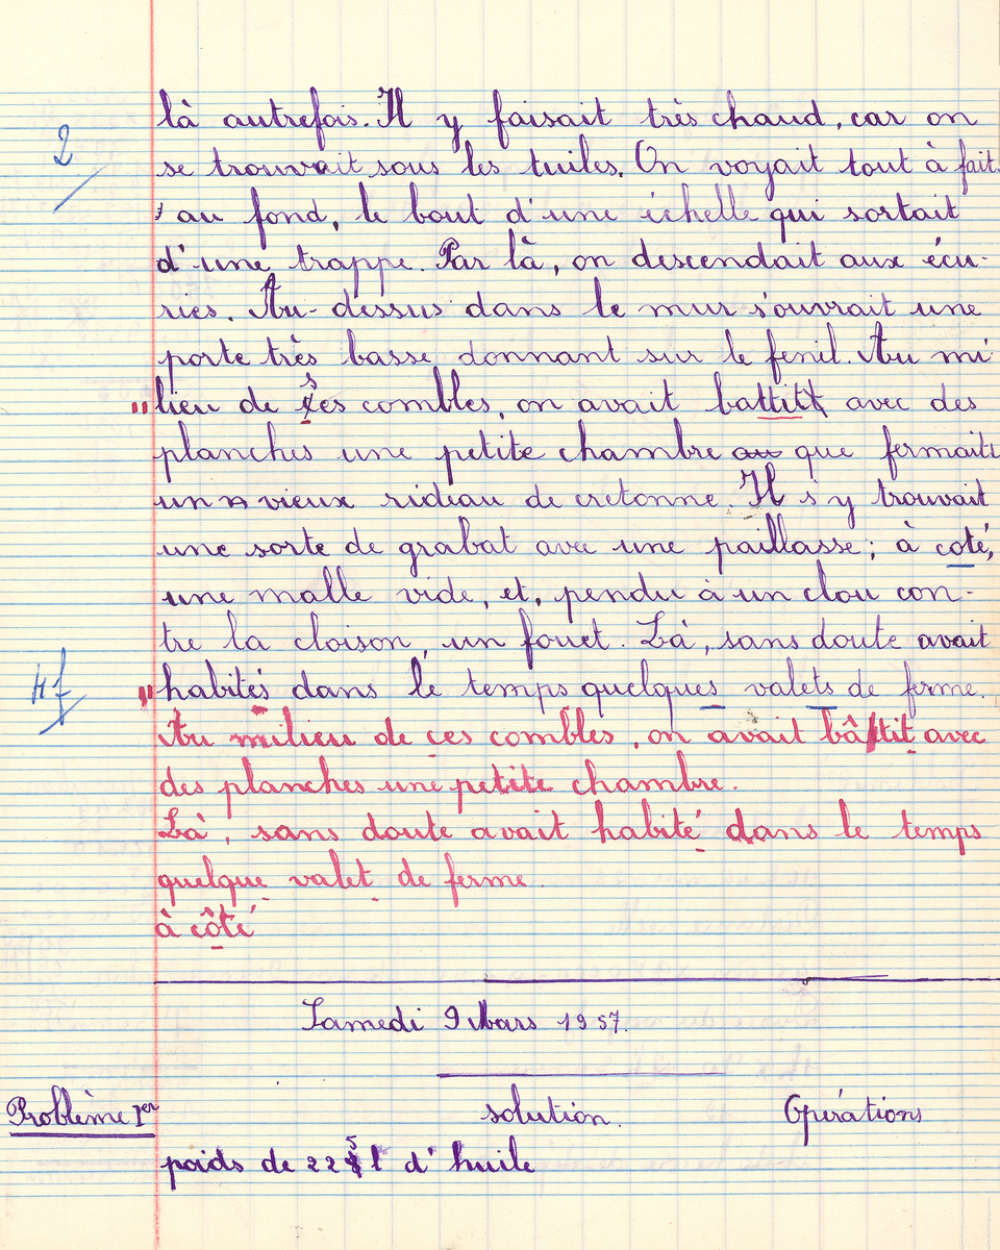 là autrefois. Il y faisait très chaud, car on
2
se trouvait sous les tuiles. On voyait tout à fait
au fond, le bout d'une échelle qui sortait
d'une trappe. Par là, on descendait aux écu-
ries. Au-dessus dans le mur s'ouvrait une
porte très basse donnant sur le fenil. Au mi
lieu de ses combles, on avait battit avec des
planches une petite chambre que fermait
un vieux rideau de cretonne. Il s'y trouvait
une sorte de grabat avec une paillasse; à coté,
une malle vide, et, pendu à un clou con-
tre la cloison, un fouet. Là, sans doute avait
4f
habités dans le temps quelques valets de ferme.
Au milieu de ces combles, on avait bâtit avec
des planches une petite chambre.
Là, sans doute avait habité dans le temps
quelque valet de ferme.
à côté
Samedi 9 Mars 1957.
Problème 1er solution. Opérations
poids de 225 l d'huile